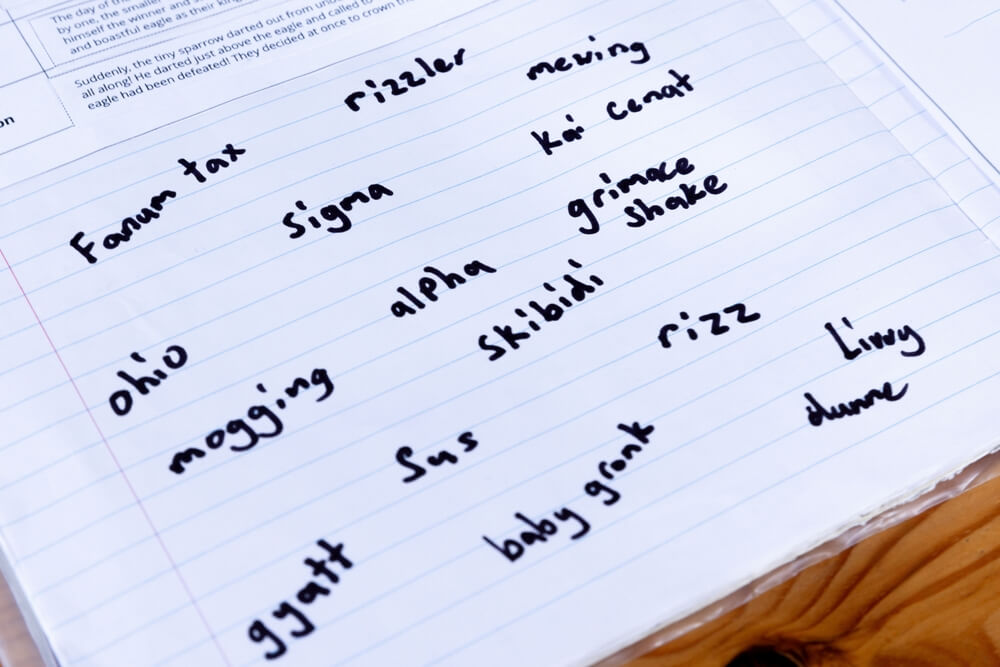 The day of th
by one, the smaller
himself the winner and as
and boastful eagle as their king
Suddenly, the tiny sparrow darted out from und
all along! He darted just above the eagle and called to
eagle had been defeated! They decided at once to crown th
on
rizzler
mewing
kai cenat
Fanum tax
sigma
grimace
shake
alpha
skibidi
rizz
Livvy
dunne
ohio
mogging
Sus
baby gronk
gyatt